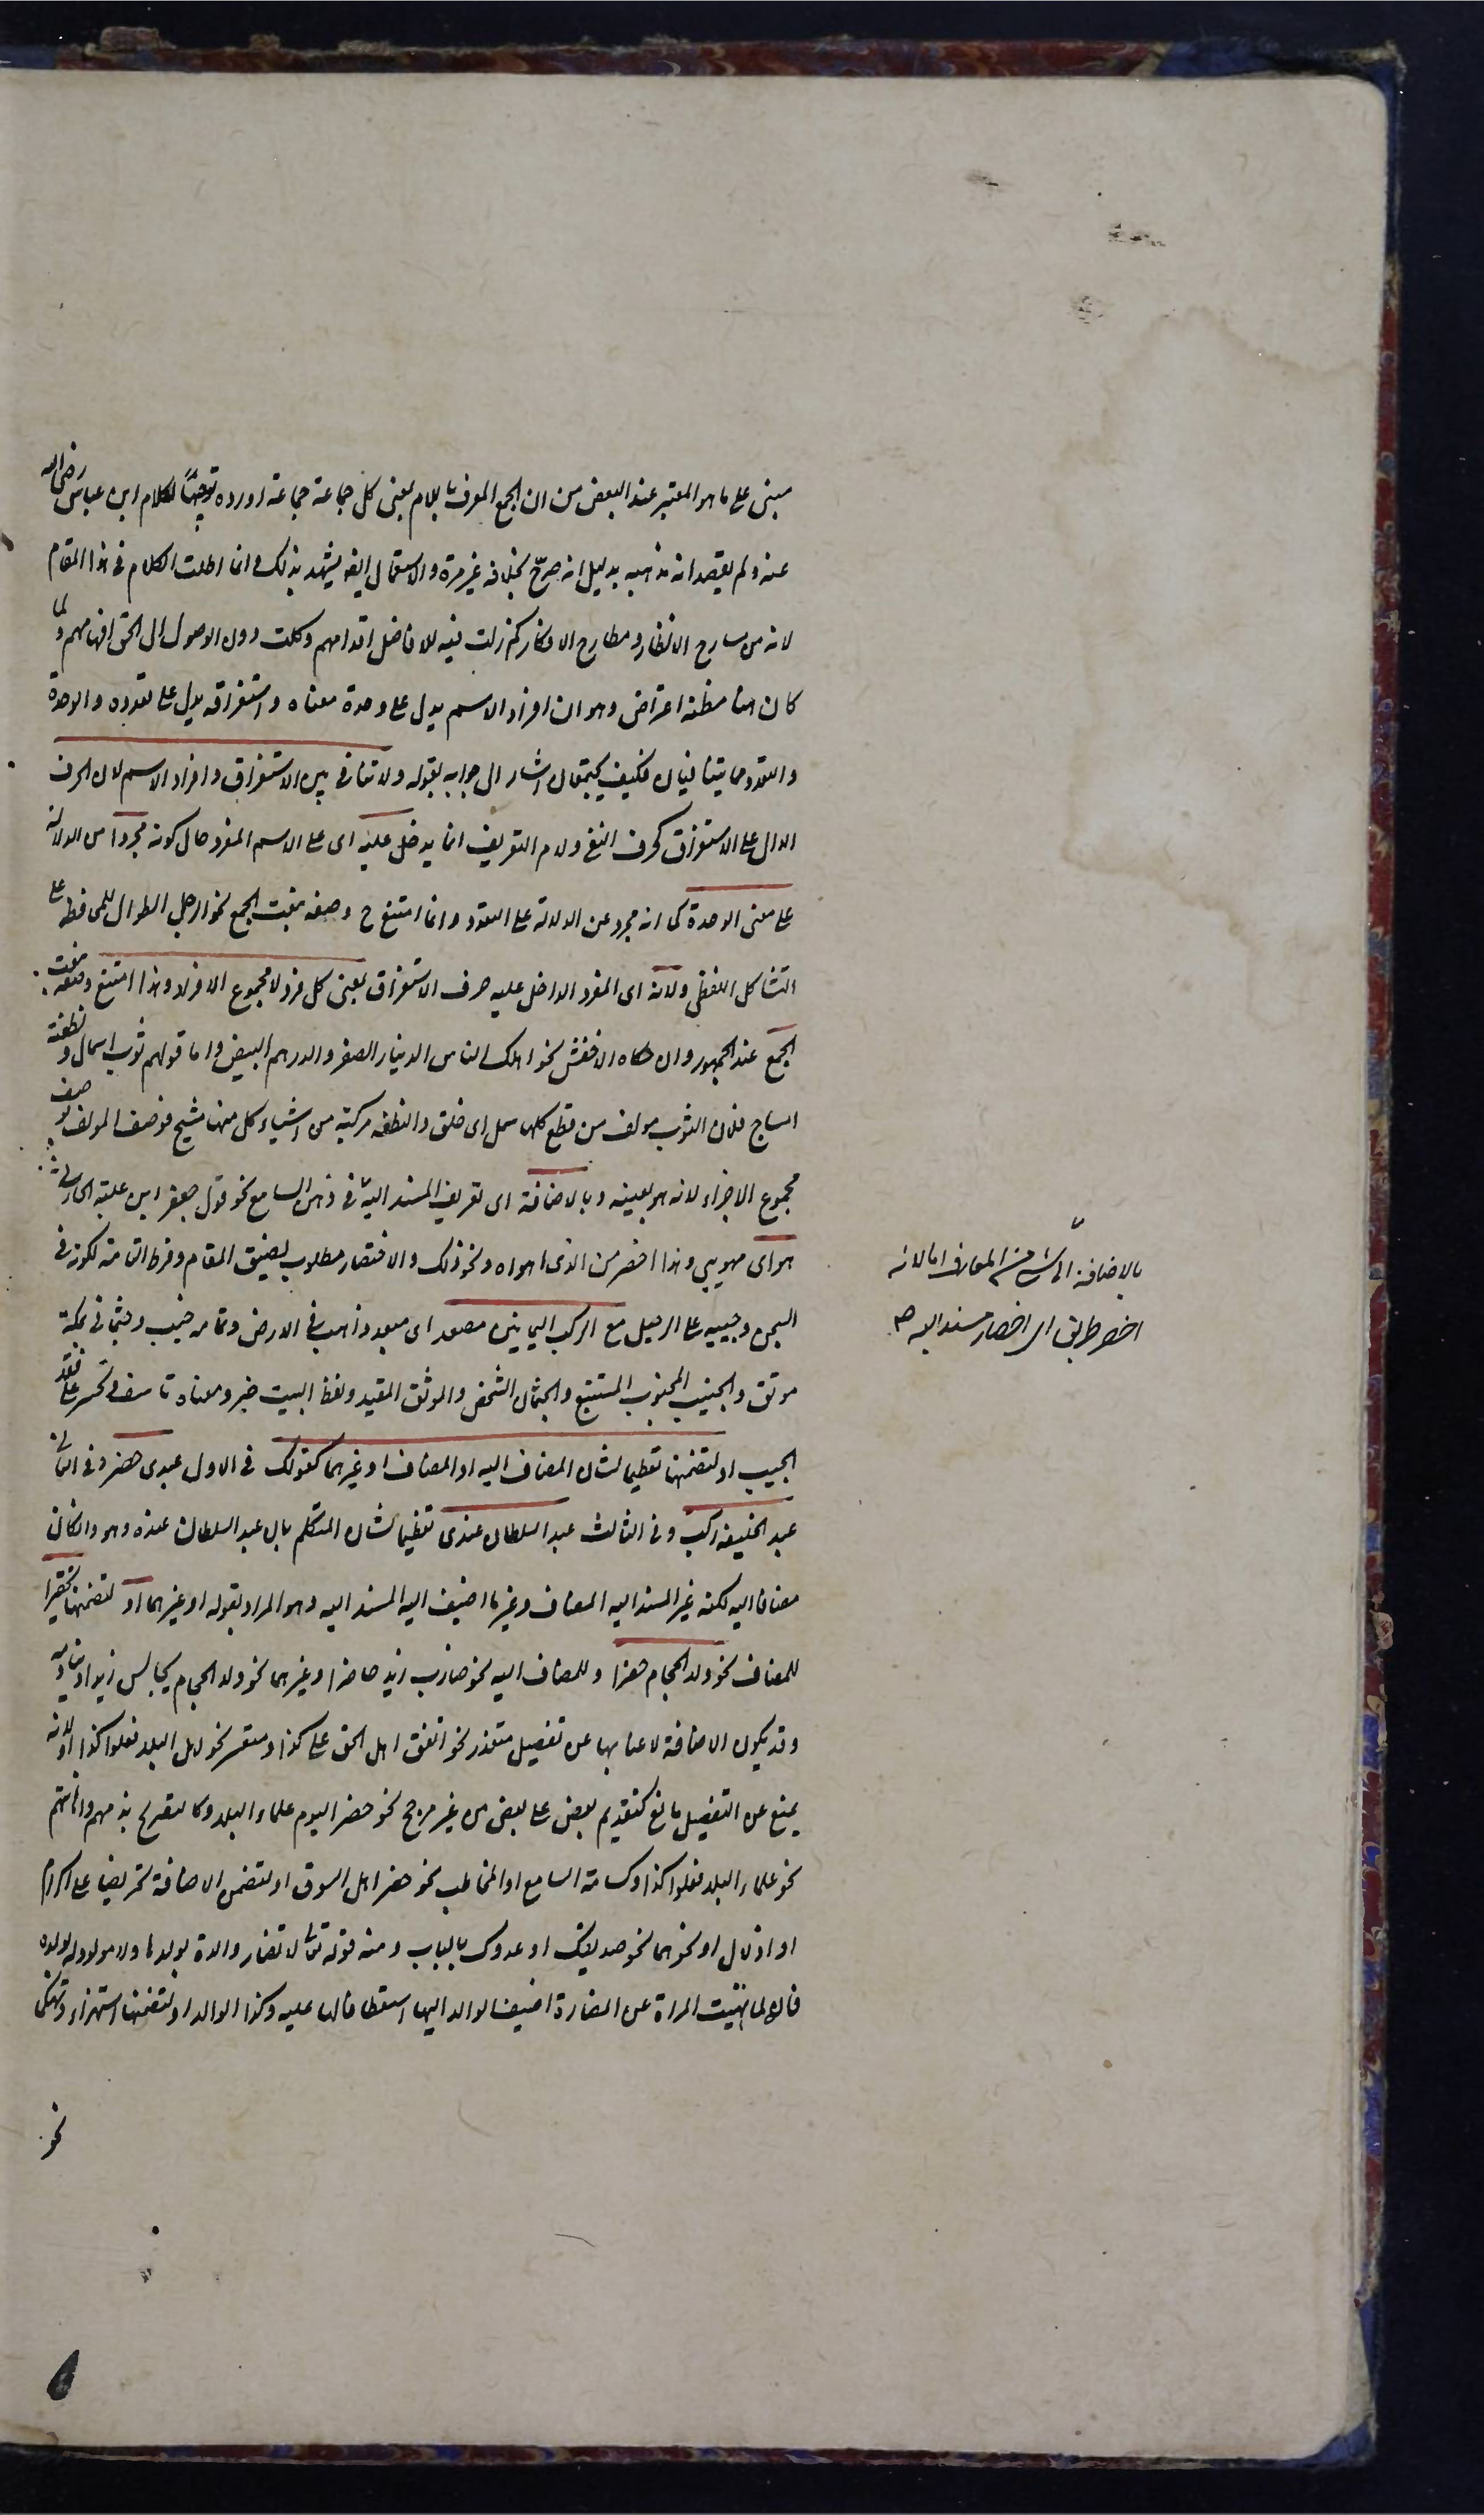 مبنى على ما هو المعتبر عند البعض من ان الجمع المعرف باللام بمعنى كل جماعة جماعة اورده توجيها لكلام ابن عباس رضى الله
عنه ولم يقصد انه مذهبه بدليل انه صرح بخلافه غير مرة والاستعمال ايضا يشهد بذلك وانما اطلت الكلام فى هذا المقام
لانه من مسارح الانظار ومطارح الافكار كم زلت فيه للافاضل اقدامهم وكلت دون الوصول الى الحق افهامهم ولما
كان هنا مظنة اعتراض وهو ان افراد الاسم يدل على وحدة معناه واستغراقه يدل على تعدده والوحدة
والتعدد مما يتنافيان فكيف يجتمعان اشار الى جوابه بقوله ولا تنافى بين الاستغراق وافراد الاسم لان الحرف
الدال على الاستغراق كحرف النفى ولام التعريف انما يدخل عليه اى على الاسم المفرد حال كونه مجردا من الدلالة
على معنى الوحدة كما انه مجرد عن الدلالة على التعدد وانما امتنع ح وصفه بنعت الجمع نحو الرجل الطوال للمحافظة على
التشاكل اللفظى ولانه اى المفرد الداخل عليه حرف الاستغراق بمعنى كل فرد لا مجموع الافراد ولهذا امتنع وصفه بنعت
الجمع عند الجمهور وان حكاه الاخفش نحو اهلك الناس الدينار الصفر والدرهم البيض واما قولهم ثوب اسمال ونطفة
امشاج فلان الثوب مولف من قطع كلها سمل اى خلق والنطفة مركبة من اشياء كل منها مشيج فوصف المولف بوصف
مجموع الاجزاء لانه هو بعينه وبالاضافة اى تعريف المسند اليه فى ذهن السامع نحو قول جعفر ابن علبة الحارثى
هواى مهويى وهذا اخصر من الذى اهواه ونحو ذلك والاختصار مطلوب لضيق المقام وفرط السامة لكونه فى
السجن وحبيبه على الرحيل مع الركب اليمانين مصعد اى مبعد ذاهب فى الارض وتمامه جنيب وجثمانى بمكة
موثق والجنيب المجنوب المستتبع والجثمان الشخص والموثق المقيد ولفظ البيت خبر ومعناه تاسف وتحسر على فقد
الحبيب او لتضمنها تعظيما لشان المضاف اليه او المضاف او غيرهما كقولك فى الاول عبدى حضر وفى الثانى
عبد الخليفة ركب وفى الثالث عبد السلطان عندى تعظيما لشان المتكلم بان عبد السلطان عنده وهو وان كان
مضافا اليه لكنه غير المسند اليه المضاف وغير ما اضيف اليه المسند اليه وهو المراد بقوله او غيرهما او لتضمنها تحقيرا
للمضاف نحو ولد الحجام حضر او للمضاف اليه نحو ضارب زيد حاضر او غيرهما نحو ولد الحجام يجالس زيدا وينادمه
وقد يكون الاضافة لاغنائها عن تفصيل متعذر نحو اتفق اهل الحق على كذا او متعسر نحو اهل البلد فعلوا كذا او لانه
يمنع عن التفصيل مانع كتقديم بعض على بعض من غير مرجح نحو حضر اليوم علماء البلد وكالتصريح بذمهم واهانتهم
نحو علماء البلد فعلوا كذا وكسامة السامع او المخاطب نحو حضر اهل السوق او لتضمن الاضافة تحريضا على اكرام
او اذلال او نحوهما نحو صديقك او عدوك بالباب ومنه قوله تعالى لا تضار والدة بولدها ولا مولود له بولده
فانه لما نهيت المراة عن المضارة اضيف الولد اليها استعطافا لها عليه وكذا الوالد او لتضمنها استهزاء وتهكما
نحو
بالاضافة الى شئ من المعارف اما لانه
اخصر طريق الى احضار مسند اليه صح